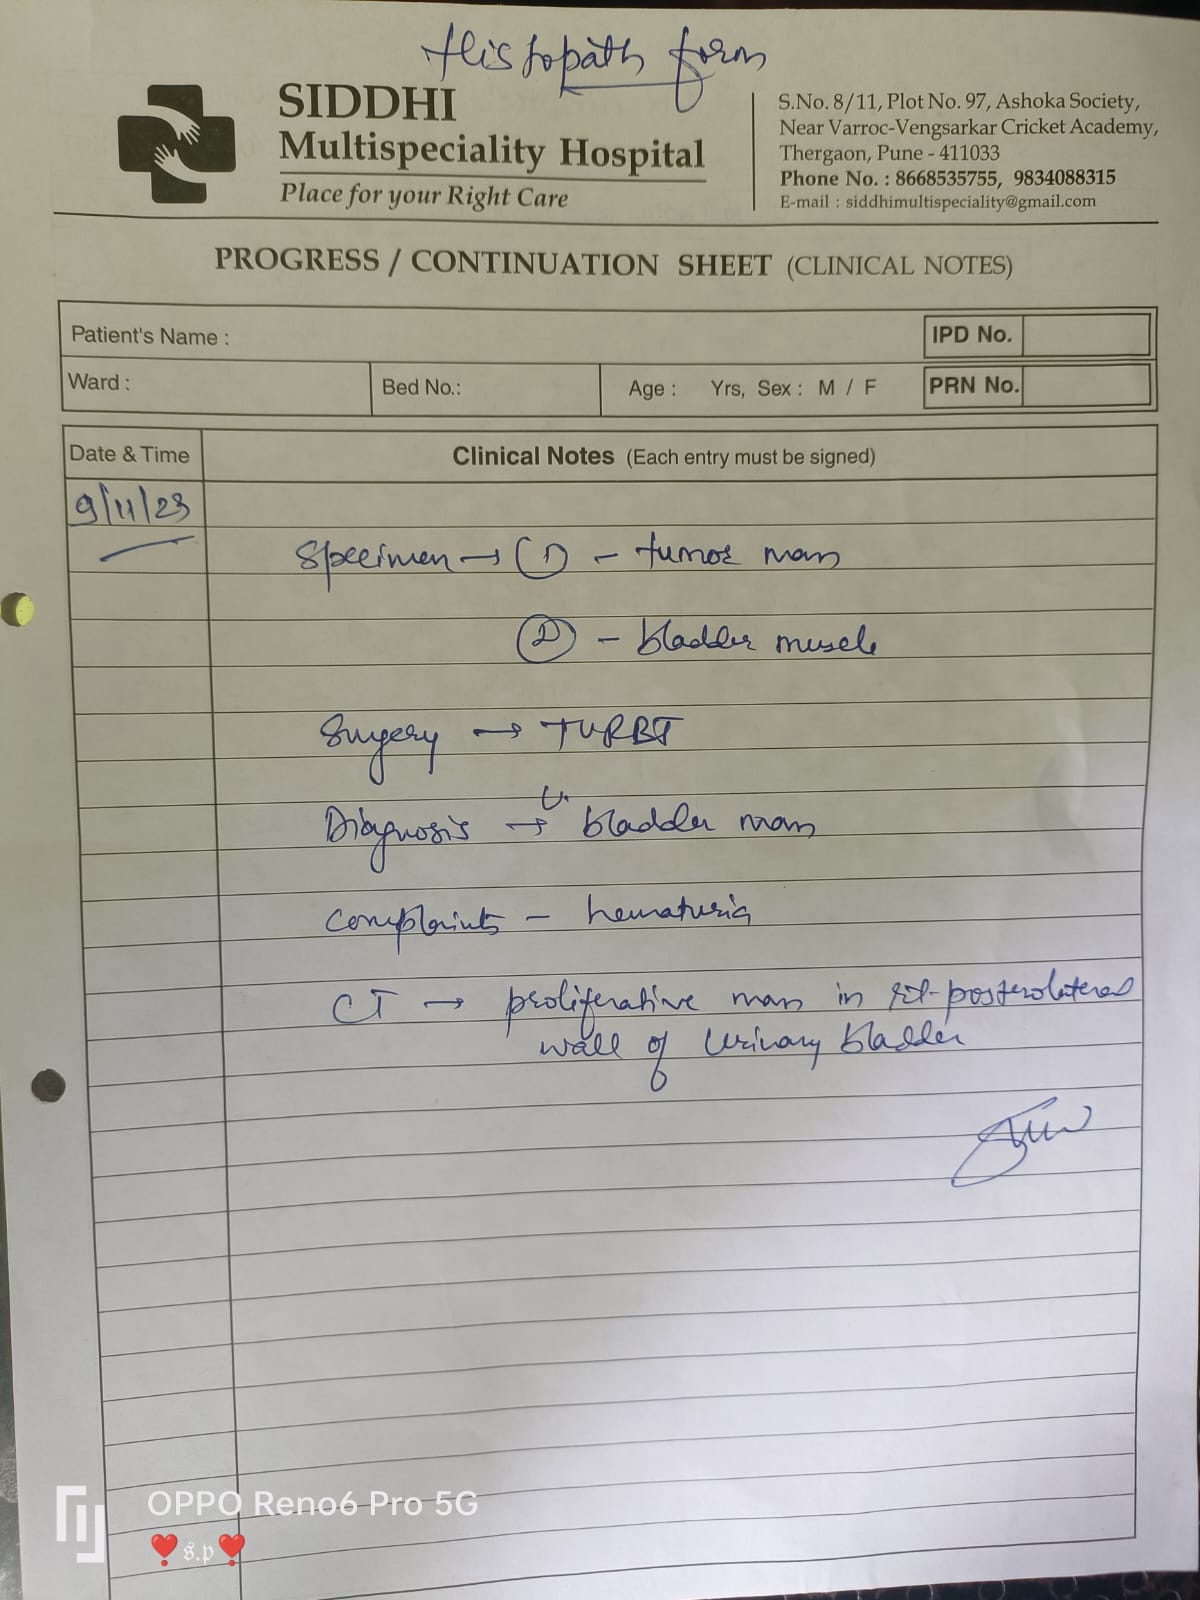 Histopath form
SIDDHI
Multispeciality Hospital
Place for your Right Care
S.No. 8/11, Plot No. 97, Ashoka Society,
Near Varroc-Vengsarkar Cricket Academy,
Thergaon, Pune - 411033
Phone No. : 8668535755, 9834088315
E-mail : siddhimultispeciality@gmail.com
PROGRESS / CONTINUATION SHEET (CLINICAL NOTES)
Patient's Name :
IPD No.
Ward :
Bed No.:
Age : Yrs, Sex : M / F
PRN No.
Date & Time
Clinical Notes (Each entry must be signed)
9/11/23
Specimen → ① - tumor mass
② - bladder muscle
Surgery → TURBT
Diagnosis → U. bladder mass
Complaints - hematuria
CT → proliferative mass in rt-posterolateral
wall of Urinary bladder
OPPO Reno6 Pro 5G
❣️ S.p ❣️